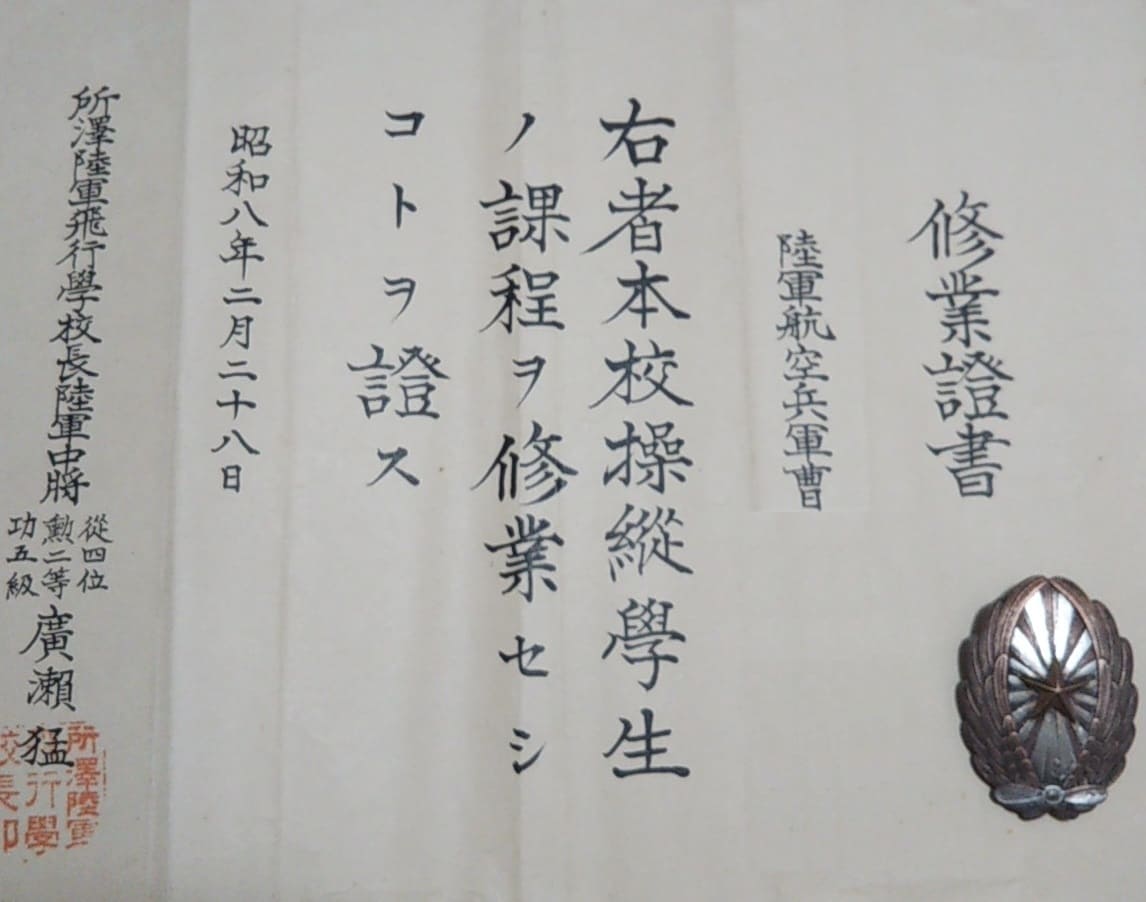 修業證書
陸軍航空兵軍曹
右者本校操縱學生
ノ課程ヲ修業セシ
コトヲ證ス
昭和八年二月二十八日
所澤陸軍飛行學校長陸軍中將
從四位
勲二等
功五級
廣瀨猛
所澤陸軍
行學
校長印